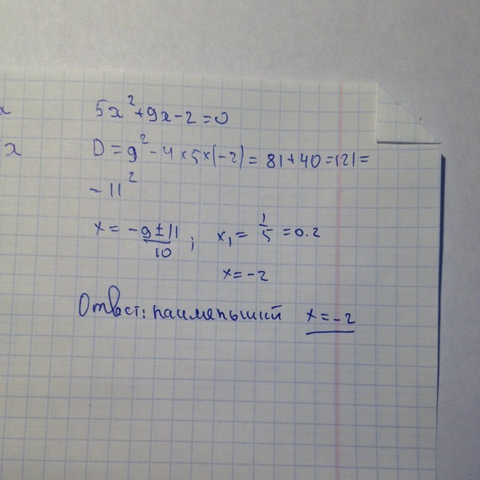 x
5x²+9x-2=0
x
D=9²-4×5×(-2)=81+40=121=
-11²
x=-9±11/10; x₁=1/5=0.2
x=-2
Ответ: наименьший x=-2